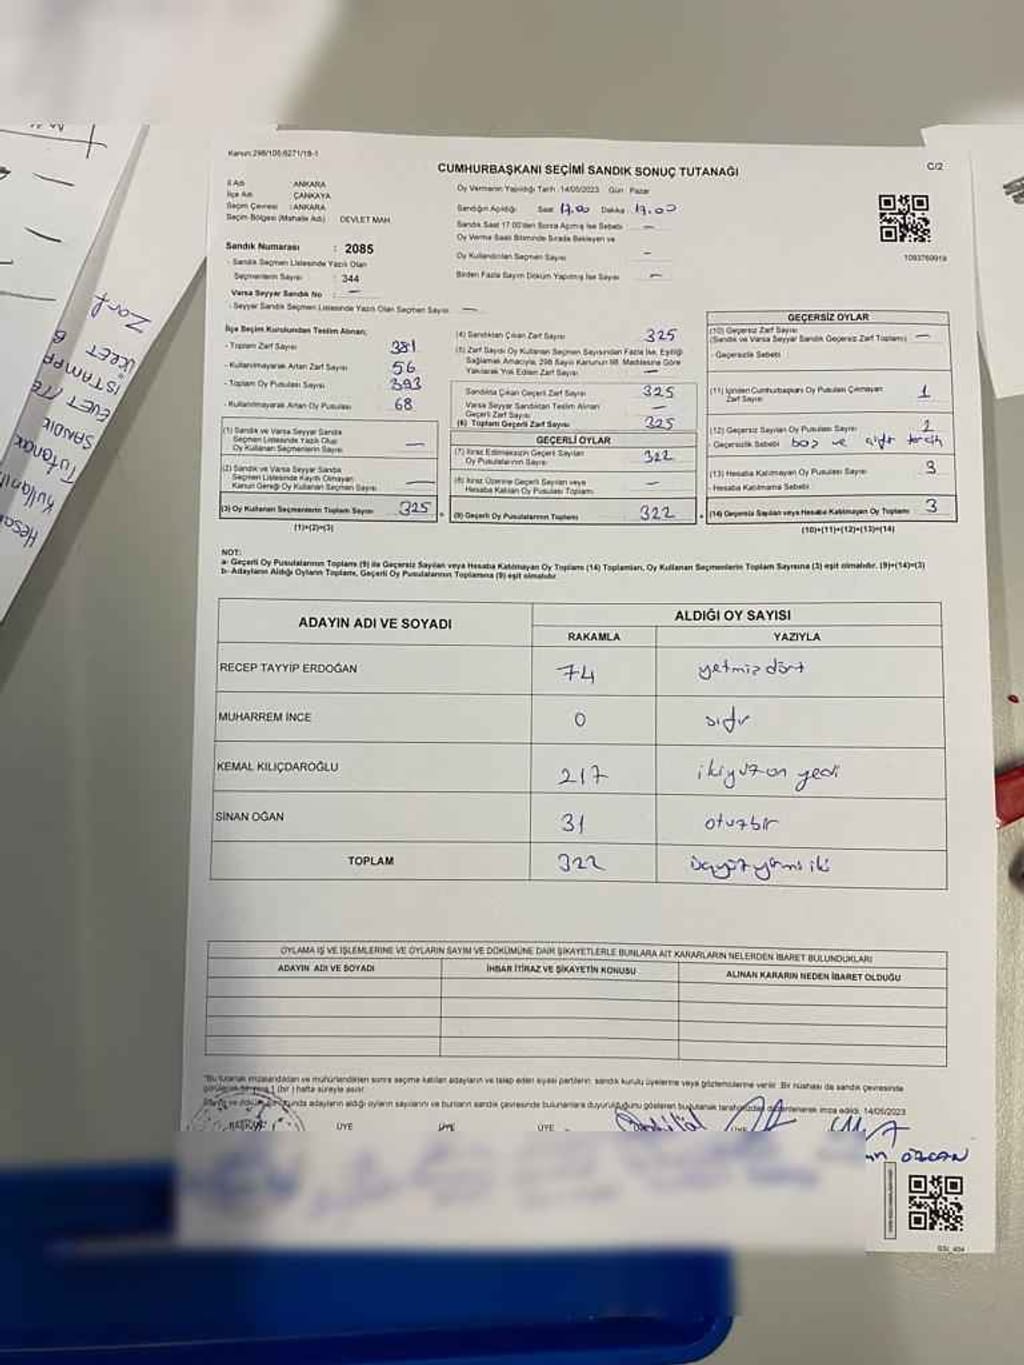 Kanun:298/105;6271/19-1
CUMHURBAŞKANI SEÇİMİ SANDIK SONUÇ TUTANAĞI
C/2
İl Adı : ANKARA
İlçe Adı : ÇANKAYA
Seçim Çevresi : ANKARA
Seçim Bölgesi (Mahalle Adı) : DEVLET MAH.
Oy Vermenin Yapıldığı Tarih : 14/05/2023 Gün : Pazar
Sandığın Açıldığı Saat : 17.00 Dakika : 17.00
Sandık Saat 17.00'den Sonra Açılmış İse Sebebi —
Oy Verme Saati Bitiminde Sırada Bekleyen ve
Oy Kullandırılan Seçmen Sayısı —
Birden Fazla Sayım Döküm Yapılmış İse Sayısı —
1093760919
Sandık Numarası : 2085
- Sandık Seçmen Listesinde Yazılı Olan
Seçmenlerin Sayısı : 344
Varsa Seyyar Sandık No : —
- Seyyar Sandık Seçmen Listesinde Yazılı Olan Seçmen Sayısı : —
İlçe Seçim Kurulundan Teslim Alınan;
- Toplam Zarf Sayısı 381
- Kullanılmayarak Artan Zarf Sayısı 56
- Toplam Oy Pusulası Sayısı 393
- Kullanılmayarak Artan Oy Pusulası 68
(1) Sandık ve Varsa Seyyar Sandık
Seçmen Listesinde Yazılı Olup
Oy Kullanan Seçmenlerin Sayısı —
(2) Sandık ve Varsa Seyyar Sandık
Seçmen Listesinde Kayıtlı Olmayan
Kanun Gereği Oy Kullanan Seçmen Sayısı —
(3) Oy Kullanan Seçmenlerin Toplam Sayısı 325
(1)+(2)=(3)
(4) Sandıktan Çıkan Zarf Sayısı 325
(5) Zarf Sayısı Oy Kullanan Seçmen Sayısından Fazla İse, Eşitliği
Sağlamak Amacıyla, 298 Sayılı Kanunun 98. Maddesine Göre
Yakılarak Yok Edilen Zarf Sayısı —
Sandıkta Çıkan Geçerli Zarf Sayısı 325
Varsa Seyyar Sandıktan Teslim Alınan
Geçerli Zarf Sayısı —
(6) Toplam Geçerli Zarf Sayısı 325
GEÇERLİ OYLAR
(7) İtiraz Edilmeksizin Geçerli Sayılan
Oy Pusulalarının Sayısı 322
(8) İtiraz Üzerine Geçerli Sayılan veya
Hesaba Katılan Oy Pusulası Toplamı —
(9) Geçerli Oy Pusulalarının Toplamı 322
GEÇERSİZ OYLAR
(10) Geçersiz Zarf Sayısı
(Sandık ve Varsa Seyyar Sandık Geçersiz Zarf Toplamı) —
- Geçersizlik Sebebi
(11) İçinden Cumhurbaşkanı Oy Pusulası Çıkmayan
Zarf Sayısı 1
(12) Geçersiz Sayılan Oy Pusulası Sayısı 2
- Geçersizlik Sebebi boş ve çift tercih
(13) Hesaba Katılmayan Oy Pusulası Sayısı 3
- Hesaba Katılmama Sebebi
(14) Geçersiz Sayılan veya Hesaba Katılmayan Oy Toplamı 3
(10)+(11)+(12)+(13)=(14)
NOT:
a- Geçerli Oy Pusulalarının Toplamı (9) ile Geçersiz Sayılan veya Hesaba Katılmayan Oy Toplamı (14) Toplamları, Oy Kullanan Seçmenlerin Toplam Sayısına (3) eşit olmalıdır. (9)+(14)=(3)
b- Adayların Aldığı Oyların Toplamı, Geçerli Oy Pusulalarının Toplamına (9) eşit olmalıdır.
ADAYIN ADI VE SOYADI
ALDIĞI OY SAYISI
RAKAMLA YAZIYLA
RECEP TAYYİP ERDOĞAN 74 yetmiş dört
MUHARREM İNCE 0 sıfır
KEMAL KILIÇDAROĞLU 217 ikiyüzon yedi
SİNAN OĞAN 31 otuzbir
TOPLAM 322 üçyüzyirmi iki
OYLAMA İŞ VE İŞLEMLERİNE VE OYLARIN SAYIM VE DÖKÜMÜNE DAİR ŞİKAYETLERLE BUNLARA AİT KARARLARIN NELERDEN İBARET BULUNDUKLARI
ADAYIN ADI VE SOYADI İHBAR İTİRAZ VE ŞİKAYETİN KONUSU ALINAN KARARIN NEDEN İBARET OLDUĞU
"Bu tutanak imzalandıktan ve mühürlendikten sonra seçime katılan adayların ve talep eden siyasi partilerin, sandık kurulu üyelerine veya gözlemcilerine verilir. Bir nüshası da sandık çevresinde
1 (bir) hafta süreyle asılır.
adayların aldığı oyların sayılarını ve bunların sandık çevresinde bulunanlara duyurulduğunu gösteren bu tutanak tarafımızdan düzenlenerek imza edildi. 14/05/2023
ÜYE ÜYE ÜYE ÜYE
ÖZCAN
Zarf
ÜCRET
İSTAMPA 6
EVET
SANDIK
Tutanak